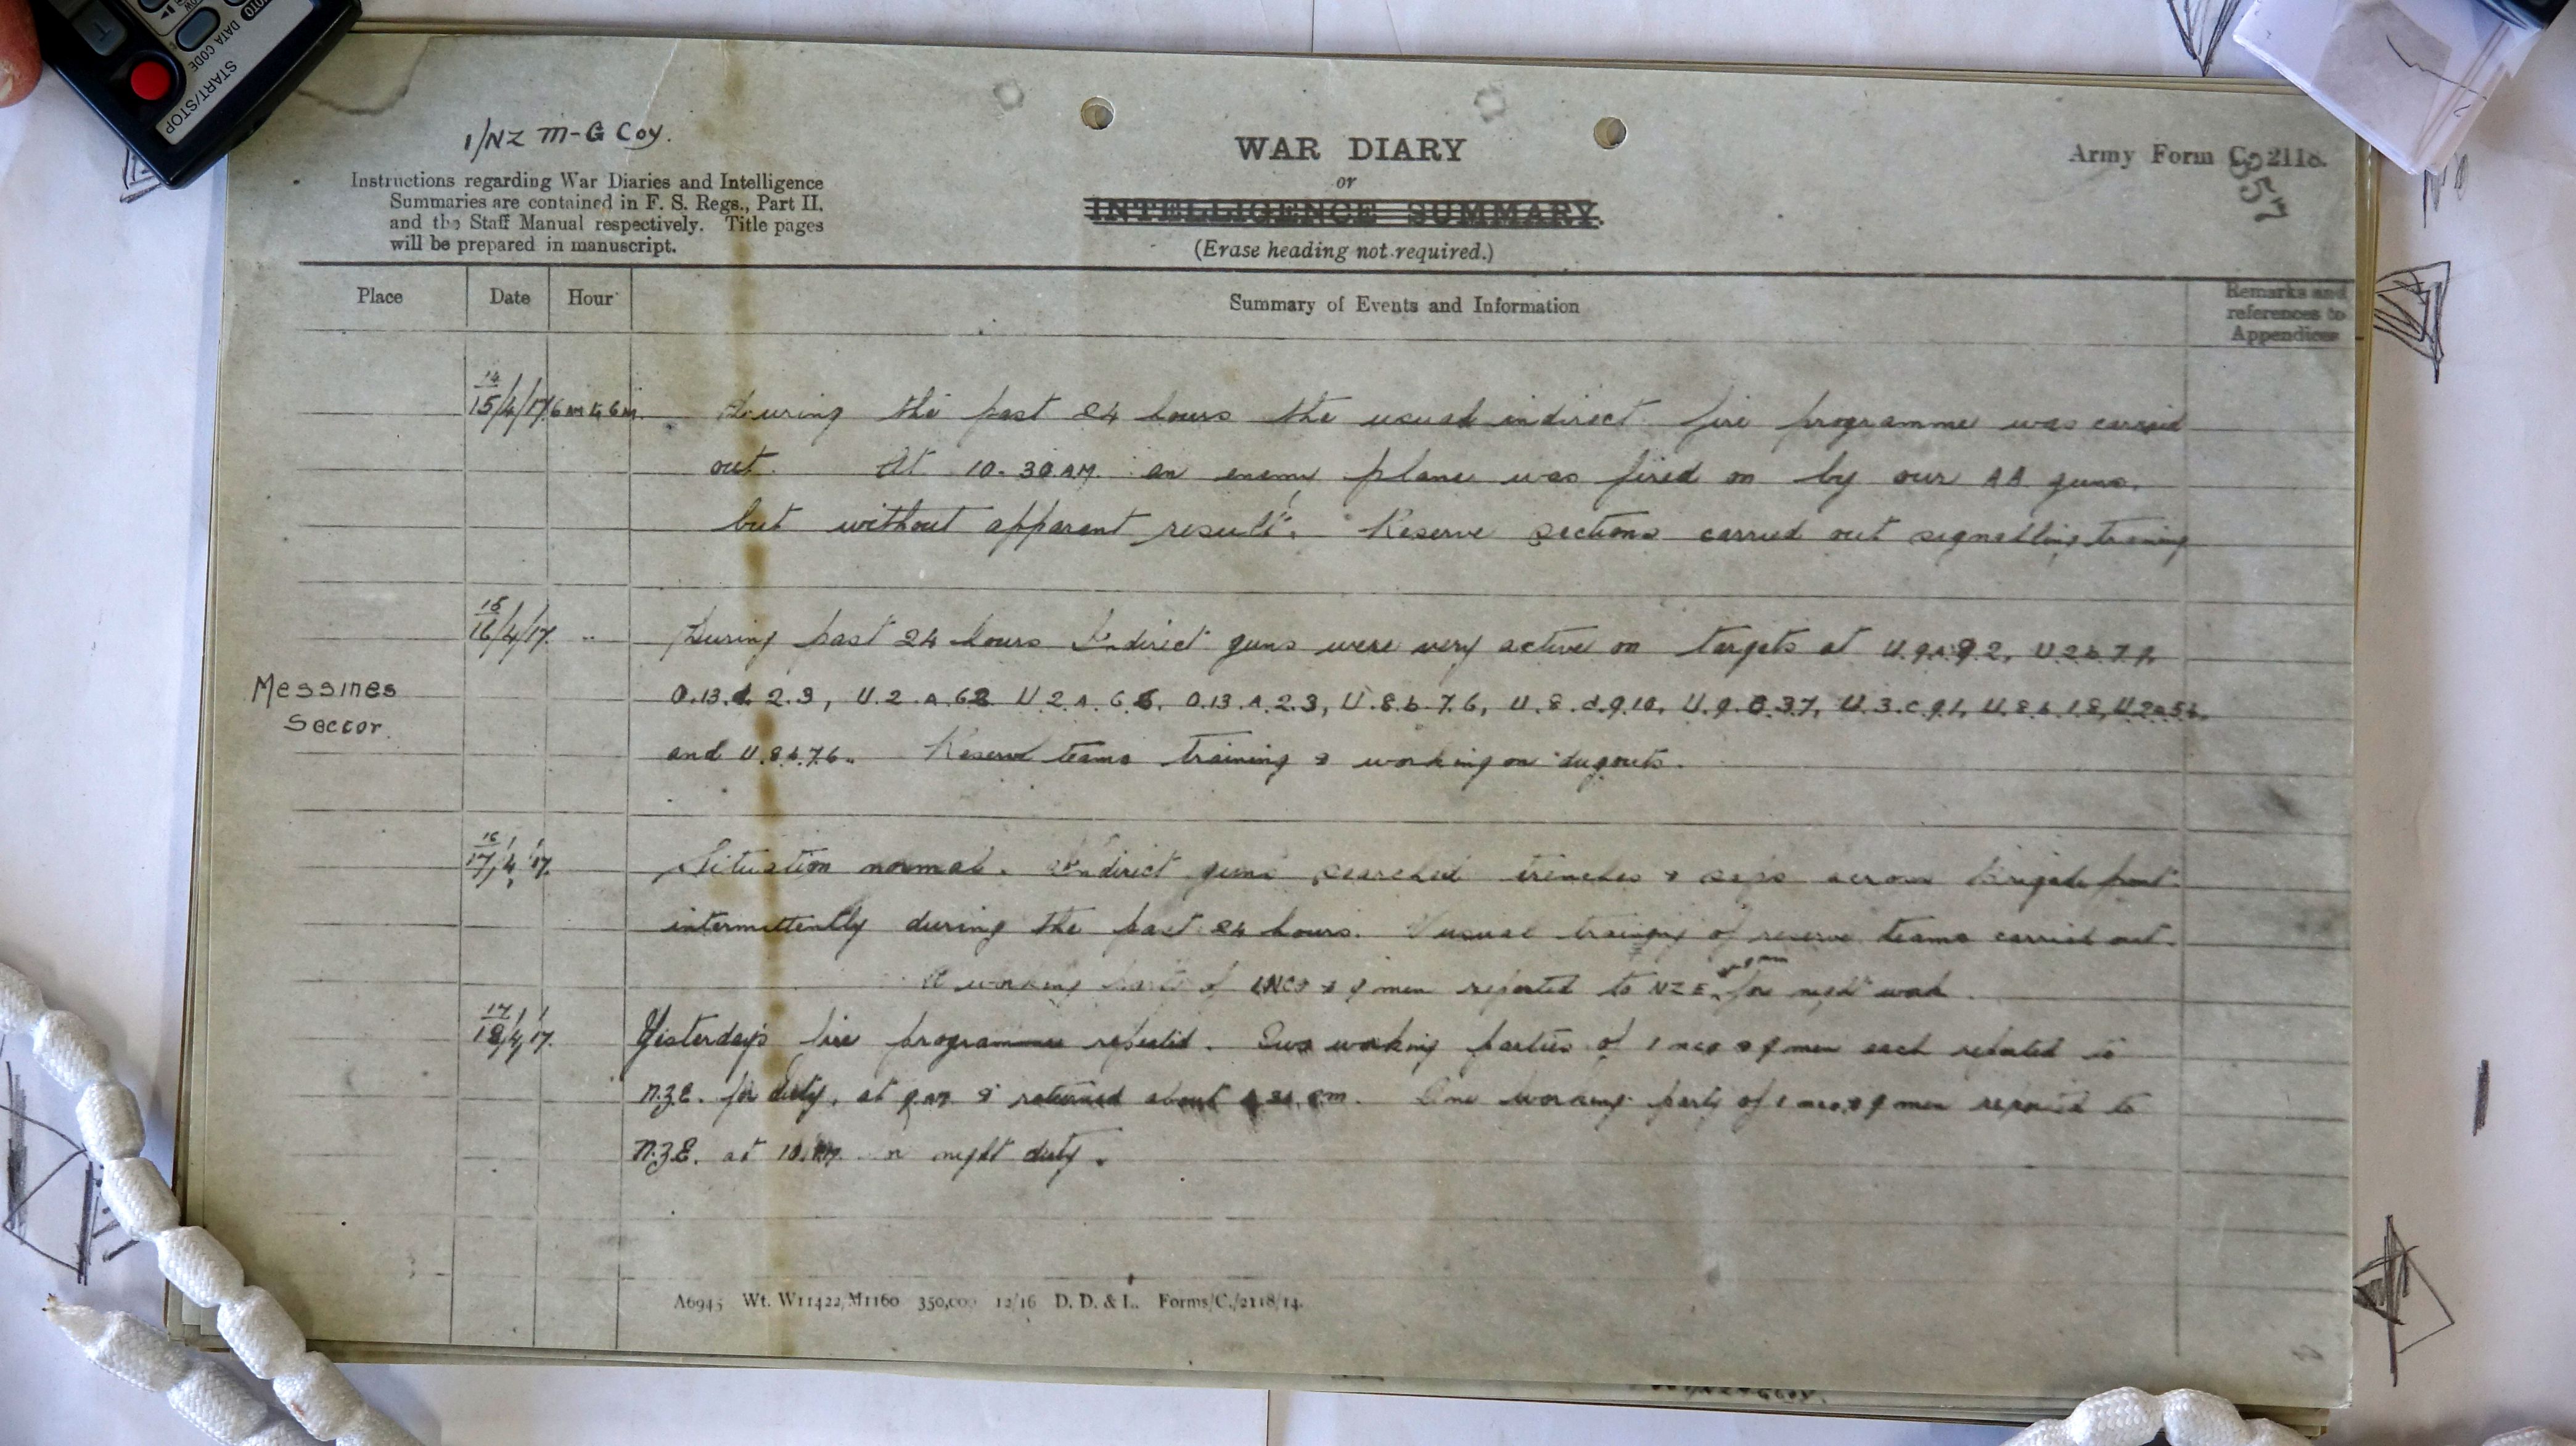 START/STOP
DATA CODE
1/NZ M-G Coy.
WAR DIARY
or
INTELLIGENCE SUMMARY.
(Erase heading not required.)
Army Form C. 2118.
357
Instructions regarding War Diaries and Intelligence
Summaries are contained in F. S. Regs., Part II.
and the Staff Manual respectively. Title pages
will be prepared in manuscript.
Place Date Hour Summary of Events and Information Remarks and
references to
Appendices
14
15/4/17 6 am to 6 am. During the past 24 hours the usual indirect fire programme was carried
out. At 10.30 AM. an enemy plane was fired on by our AA guns.
but without apparent result. Reserve sections carried out signalling training
15
16/4/17 " During past 24 hours Indirect guns were very active on targets at U.9.A.9.2, U.2.b.7.9,
Messines
Sector.
O.13.d.2.3, U.2.A.62 U.2.A.6.6, O.13.A.2.3, U.8.b.7.6, U.8.d.9.10, U.9.B.3.7, U.3.c.9.1, U.8.b.1.8, U.2.a.5.6.
and U.8.b.7.6. Reserve teams training & working on dugouts.
16
17/4/17. Situation normal. Indirect guns searched trenches & saps across Brigade front
intermittently during the past 24 hours. Usual training of reserve teams carried out.
A working party of 1 NCO & 9 men reported to NZE. for night work.
17
18/4/17. Yesterday's fire programme repeated. Two working parties of 1 nco & 9 men each reported to
N.Z.E. for duty, at 9 AM & returned about pm. One working party of 1 nco & 9 men reported to
N.Z.E. at 10. PM. on night duty.
A6945 Wt. W11422/M1160 350,000 12/16 D. D. & L. Forms/C./2118/14.